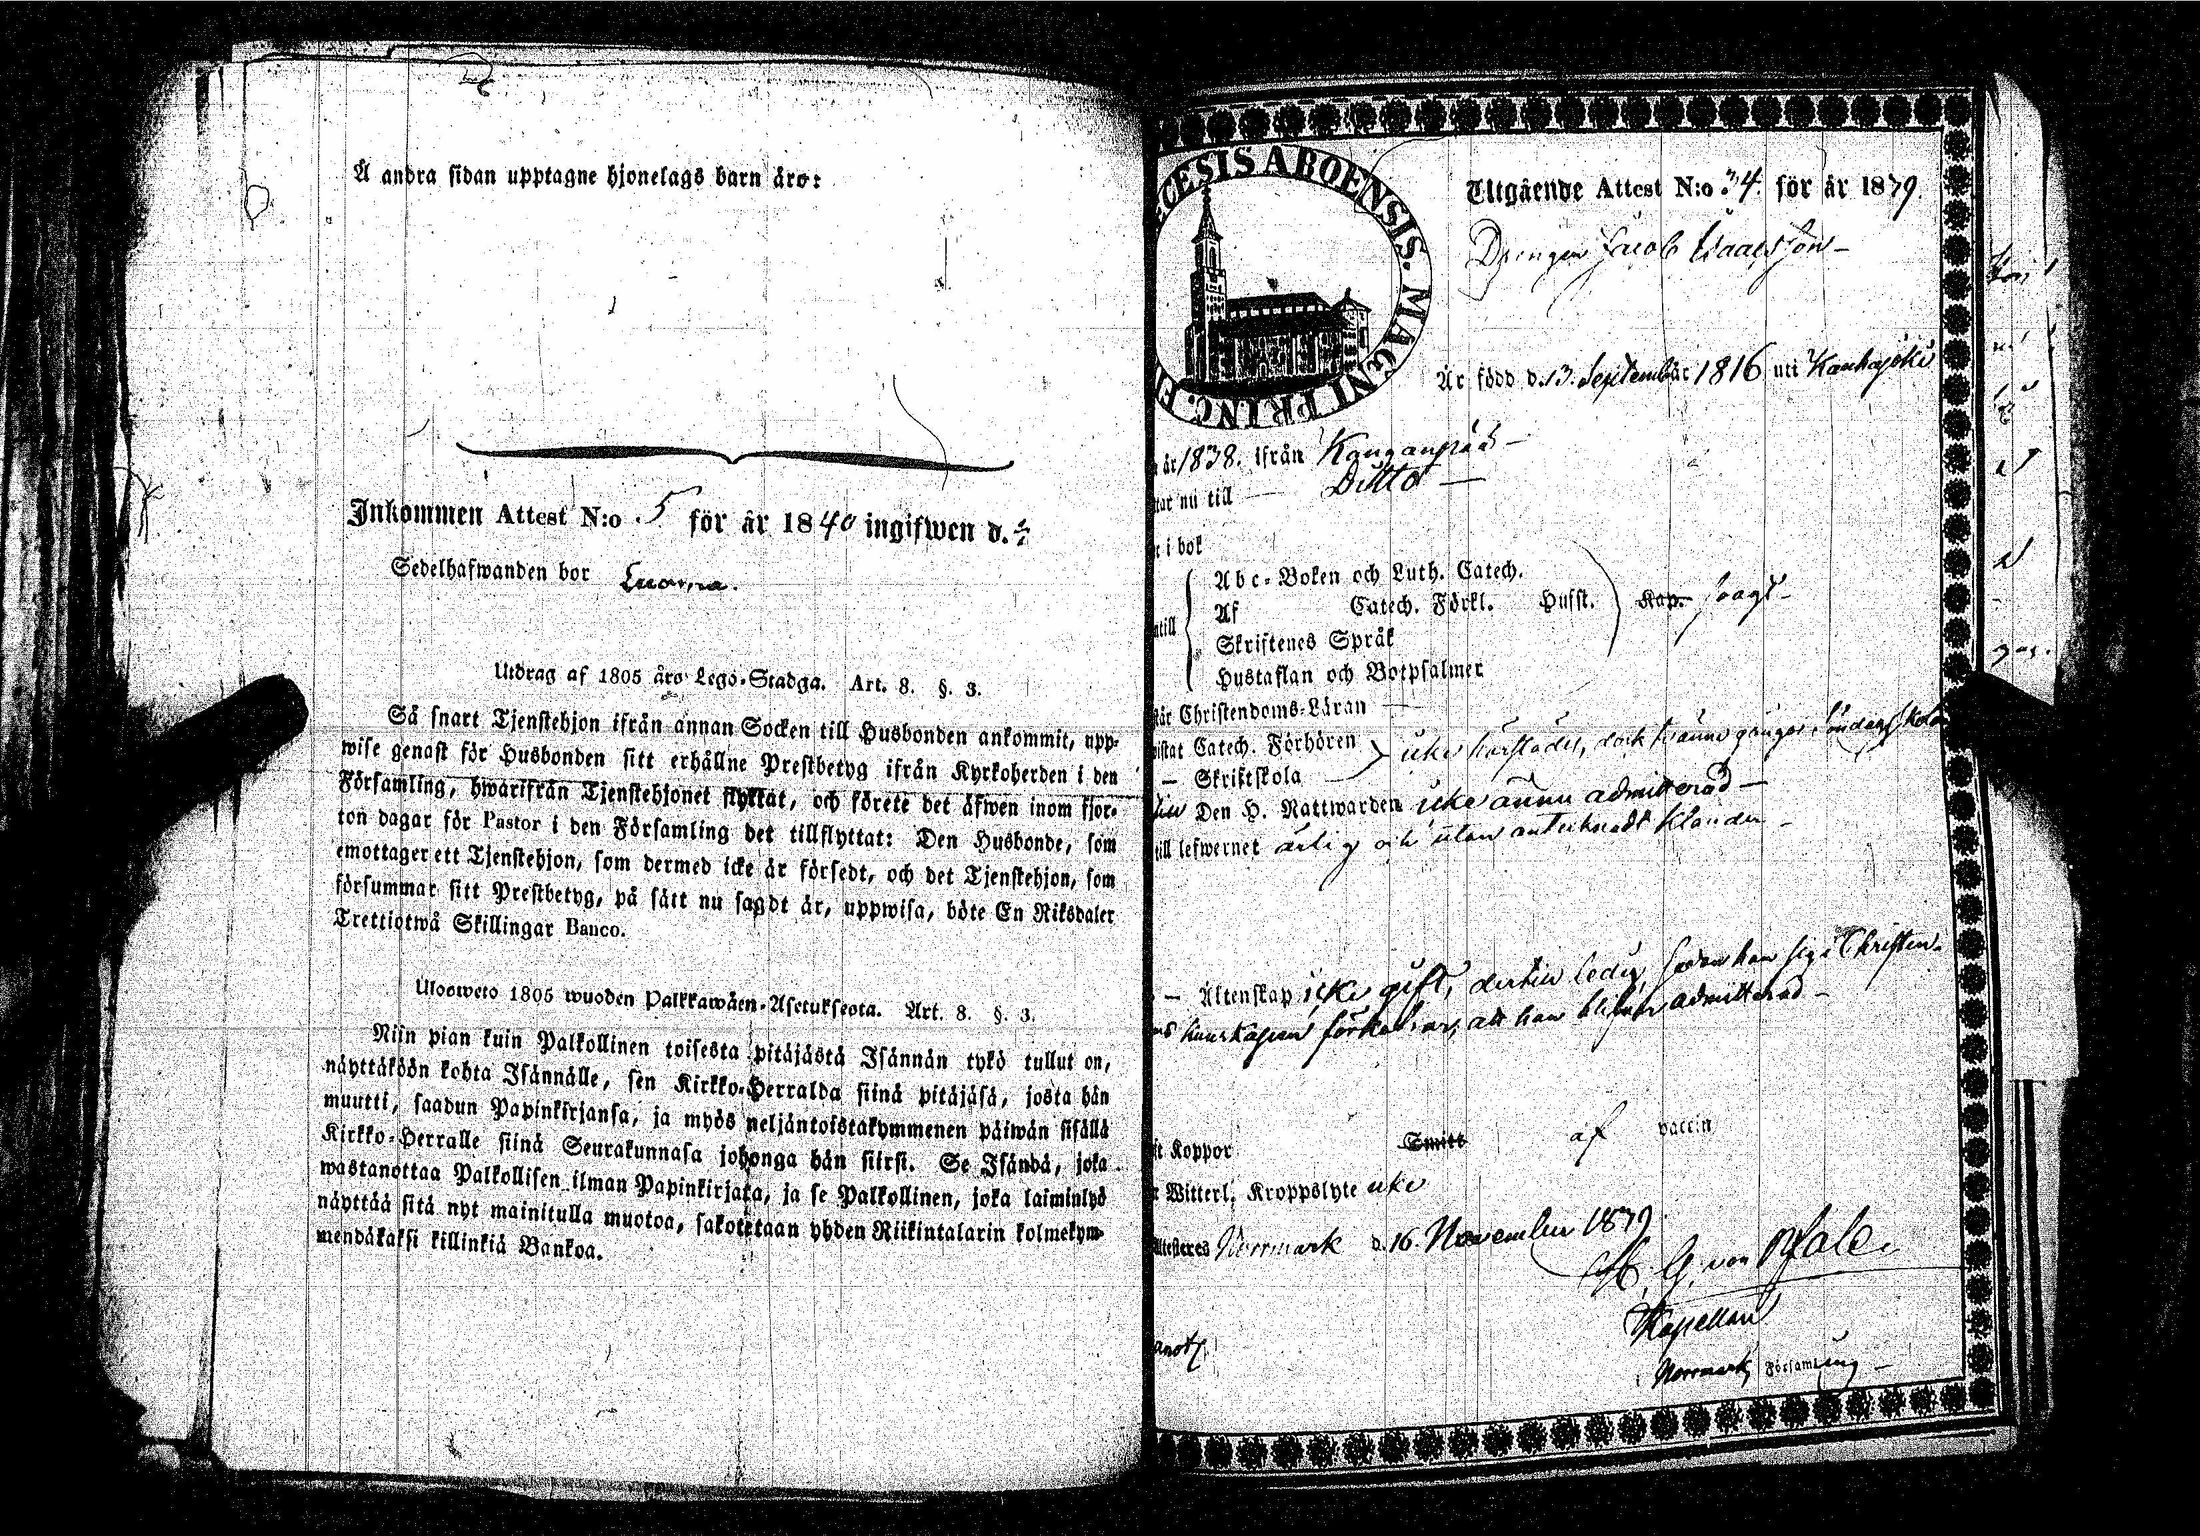 Å andra sidan upptagne hjonelags barn äro:
Inkommen Attest N:o 5 för år 1840 ingifwen d.
Sedelhafwanden bor
Utdrag af 1805 års Lego-Stadga. Art. 8. §. 3.
Så snart Tjenstehjon ifrån annan Socken till Husbonden ankommit, upp-
wise genast för Husbonden sitt erhållne Prestbetyg ifrån Kyrkoherden i den
Församling, hwarifrån Tjenstehjonet flyttat, och förete det äfwen inom fjor-
ton dagar för Pastor i den Församling det tillflyttat: Den Husbonde, som
emottager ett Tjenstehjon, som dermed icke är försedt, och det Tjenstehjon, som
försummar sitt Prestbetyg, på sätt nu sagdt är, uppwisa, böte En Riksdaler
Trettiotwå Skillingar Banco.
Ulosweto 1805 wuoden Palkkawäen-Asetuksesta. Art. 8. §. 3.
Niin pian kuin Palkollinen toisesta pitäjästä Isännän tykö tullut on,
näyttäköön kohta Isännälle, sen Kirkko-Herralda siinä pitäjäsä, josta hän
muutti, saadun Papinkirjansa, ja myös neljäntoistakymmenen päiwän sisällä
Kirkko-Herralle siinä Seurakunnasa johonga hän siirsi. Se Isändä, joka
wastanottaa Palkollisen ilman Papinkirjata, ja se Palkollinen, joka laiminlyö
näyttää sitä nyt mainitulla muotoa, sakotetaan yhden Riikintalarin kolmekym-
mendäkaksi killinkiä Bankoa.
ECESIS ABOENSIS. MAGNI PRINC. F
Utgående Attest N:o 34. för år 1839.
Drengen Jacob Isaacsson
Är född d. 13. September 1816 uti Kankajoki
år 1838. ifrån Kanganpää
nu till Ditto
i bok
Abc-Boken och Luth. Catech.
Af Catech. Förkl. Husst. Kap. svagt
Skriftenes Språk
Hustaflan och Botpsalmer
Christendoms-Läran
Catech. Förhören
Skriftskola
Den H. Nattwarden icke ännu admitterad
till lefwernet ärlig och utan antecknadt klander
Äktenskap icke gift, dertill ledig, sedan han sig i Christen-
kunskapen förkofrar, att han blifver admitterad
Koppor Smitt af vaccin
Witterl. Kroppslyte icke
Attesteres Norrmark d. 16. November 1839.
von Pfaler
Kapellan
Norrmark Församling